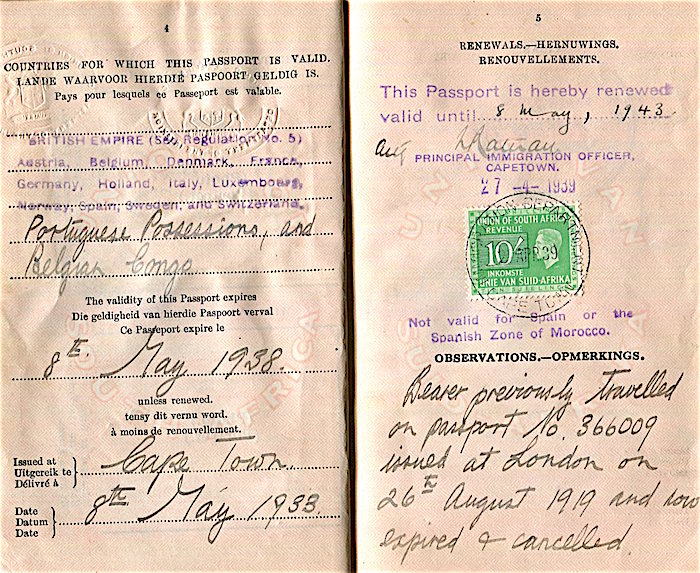 4
COUNTRIES FOR WHICH THIS PASSPORT IS VALID.
LANDE WAARVOOR HIERDIE PASPOORT GELDIG IS.
Pays pour lesquels ce Passeport est valable.
BRITISH EMPIRE (See Regulation No. 5)
Austria, Belgium, Denmark, France,
Germany, Holland, Italy, Luxembourg,
Norway, Spain, Sweden, and Switzerland.
Portuguese Possessions, and
Belgian Congo
The validity of this Passport expires
Die geldigheid van hierdie Paspoort verval
Ce Passeport expire le
8th May 1938.
unless renewed.
tensy dit vernu word.
à moins de renouvellement.
Issued at
Uitgereik te
Délivré à
Cape Town
Date
Datum
Date
8th May 1933
5
RENEWALS.—HERNUWINGS.
RENOUVELLEMENTS.
This Passport is hereby renewed
valid until 8 May, 1943
PRINCIPAL IMMIGRATION OFFICER,
CAPETOWN.
27 -4- 1939
UNION OF SOUTH AFRICA
REVENUE
10/-
INKOMSTE
UNIE VAN SUID-AFRIKA
Not valid for Spain or the
Spanish Zone of Morocco.
OBSERVATIONS.—OPMERKINGS.
Bearer previously travelled
on passport No. 366009
issued at London on
26th August 1919 and now
expired & cancelled.